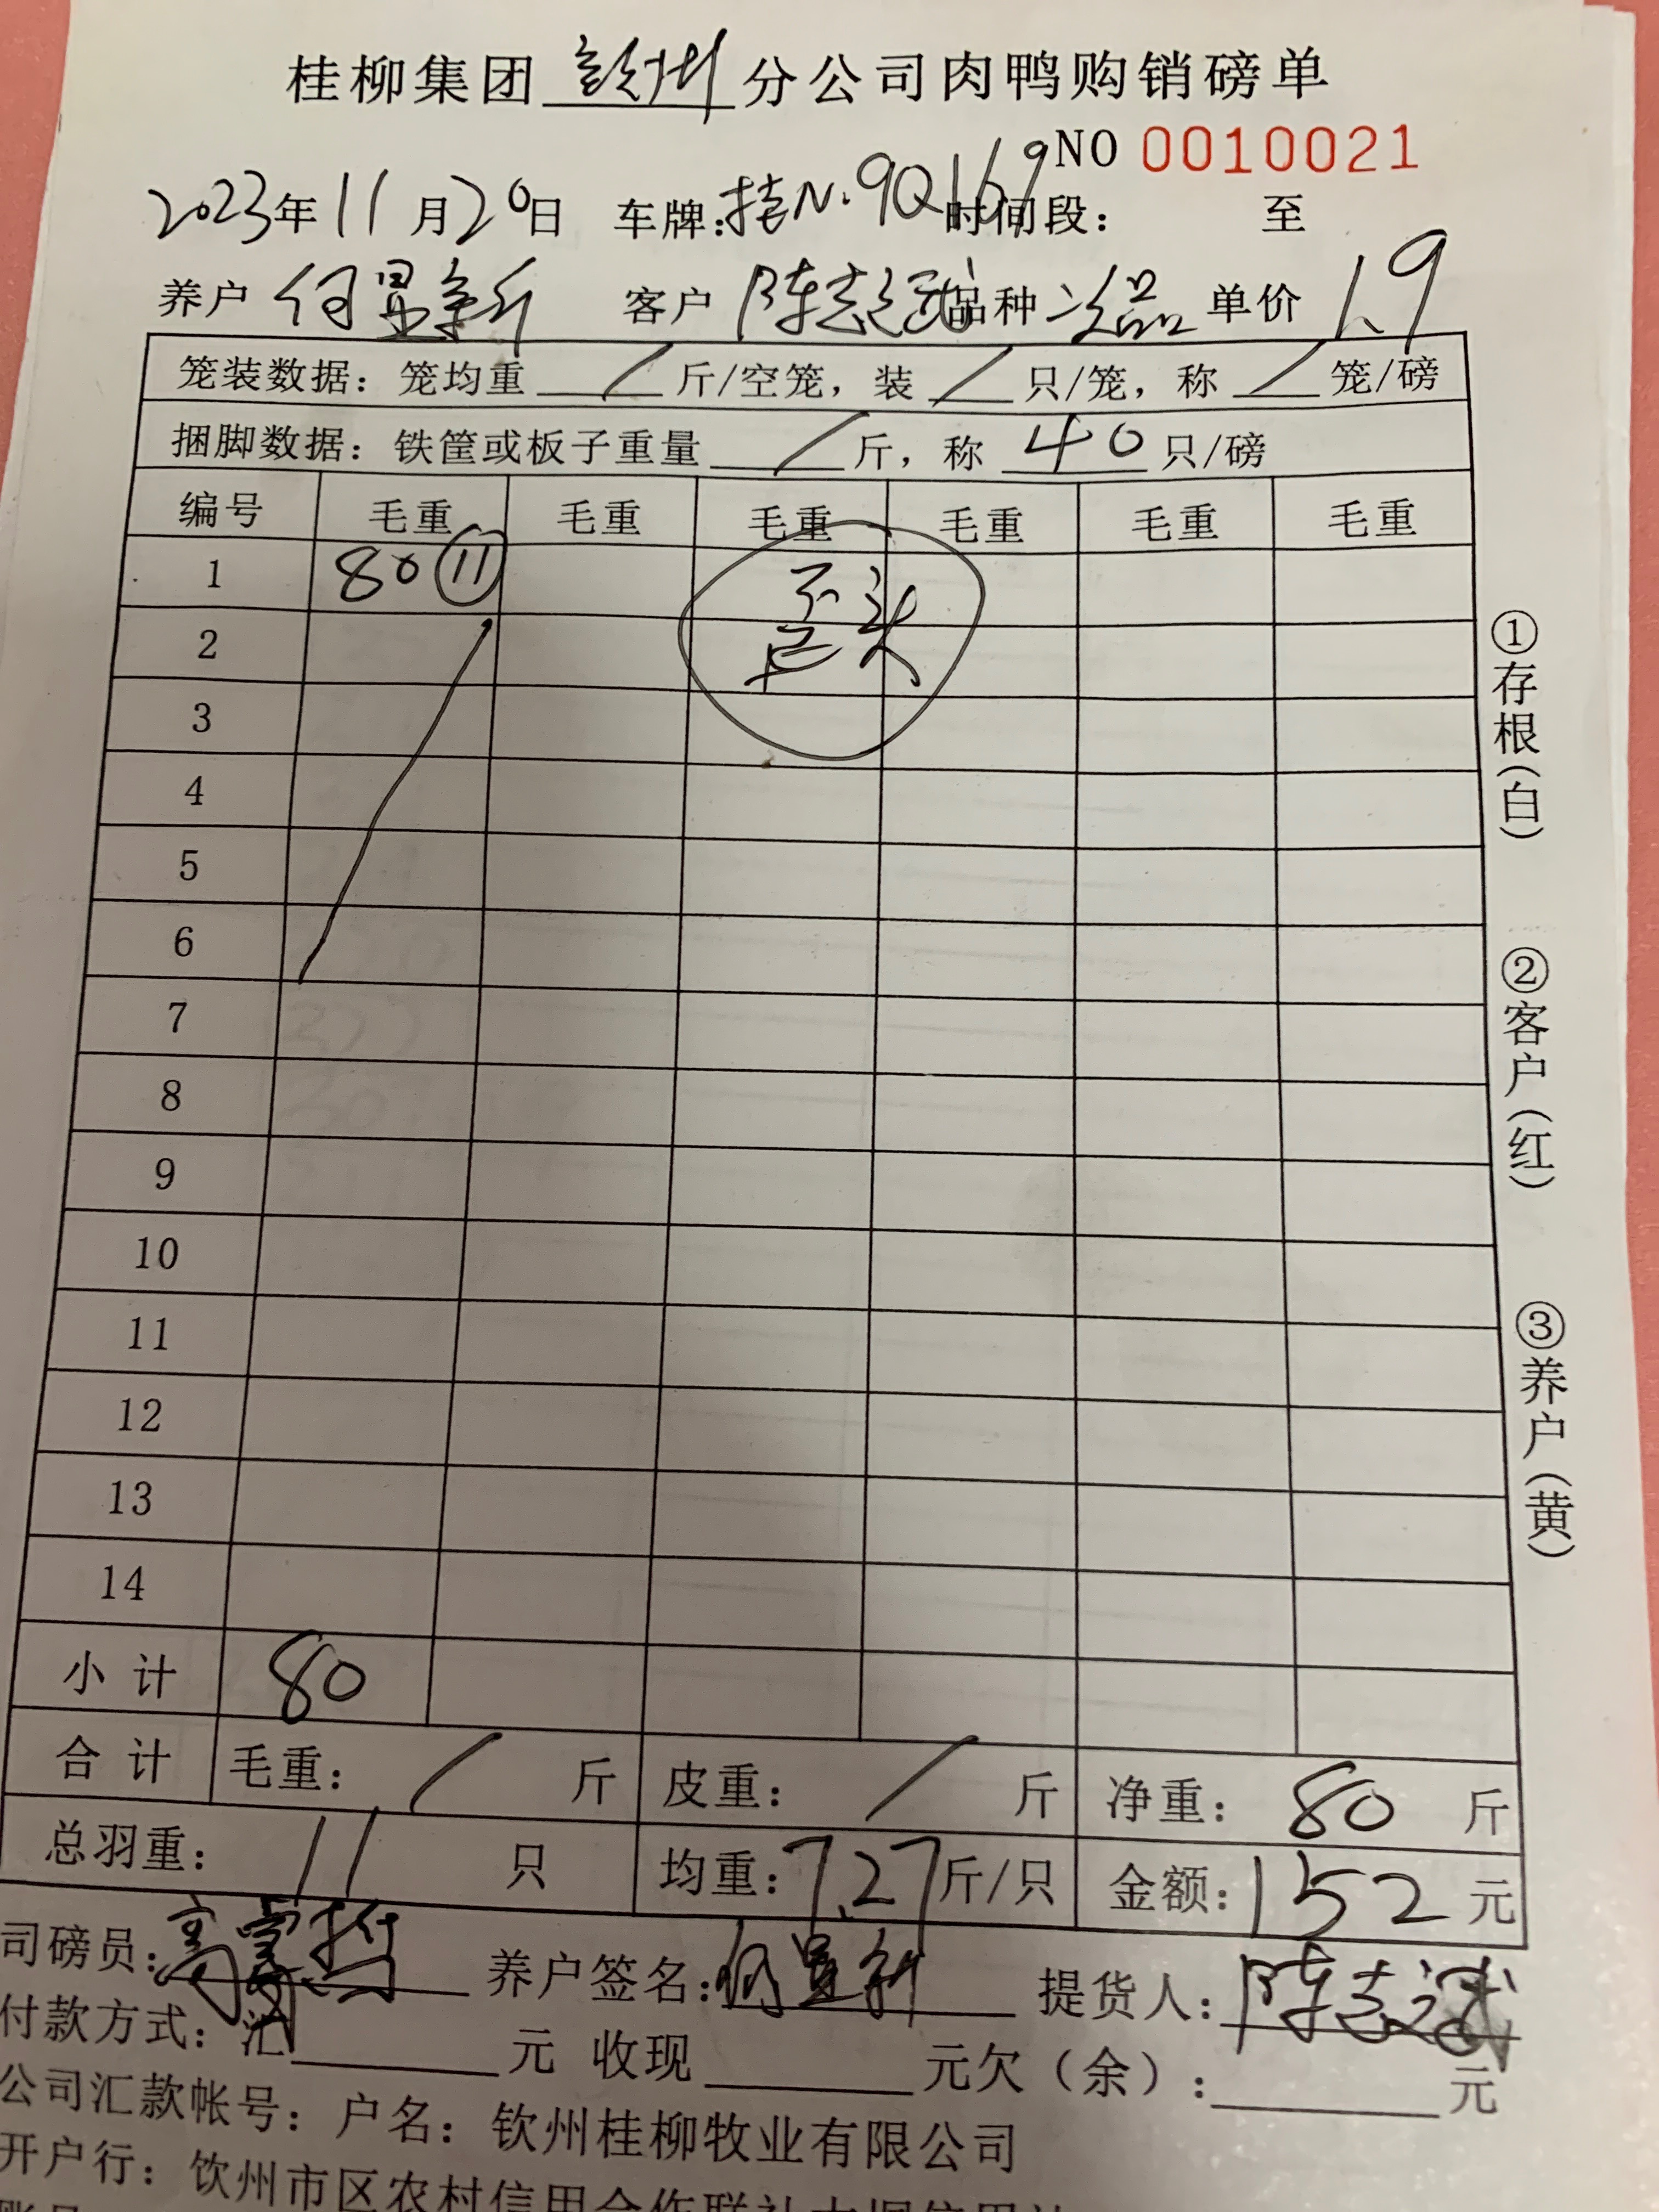 桂柳集团 钦州 分公司肉鸭购销磅单
NO 0010021
2023年11月20日 车牌:桂N·9Q169 时间段: 至
养户 何显新 客户 陈志远 品种 次品 单价 1.9
笼装数据: 笼均重 / 斤/空笼, 装 / 只/笼, 称 / 笼/磅
捆脚数据: 铁筐或板子重量 / 斤, 称 40 只/磅
编号 毛重 毛重 毛重 毛重 毛重 毛重
1 80 ⑪
2
3
4
5
6
7
8
9
10
11
12
13
14
小计 80
合计 毛重: / 斤 皮重: / 斤 净重: 80 斤
总羽重: 11 只 均重: 7.27 斤/只 金额: 152 元
司磅员: 养户签名: 何显新 提货人: 陈志
付款方式: 汇 元 收现 元欠(余): 元
公司汇款帐号: 户名: 钦州桂柳牧业有限公司
开户行: 钦州市区农村信用合作联社
①存根(白)
②客户(红)
③养户(黄)